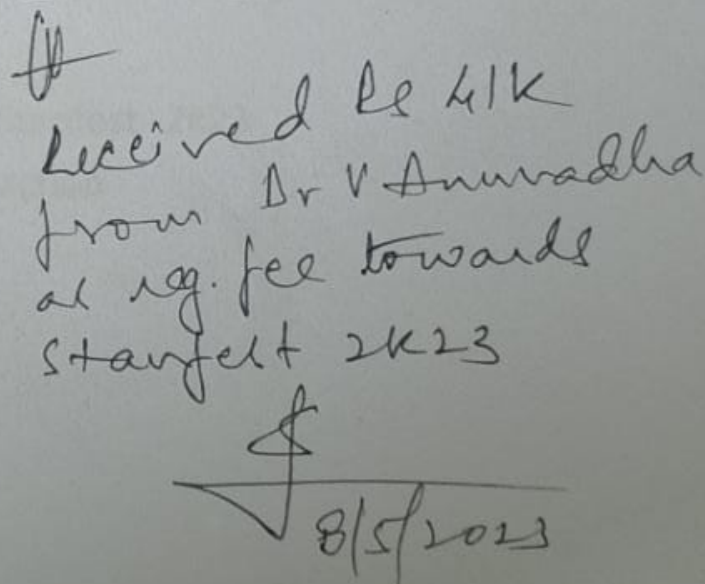 Received Rs 41K
from Dr V Anuradha
as reg. fee towards
Stanfest 2K23
8/5/2023